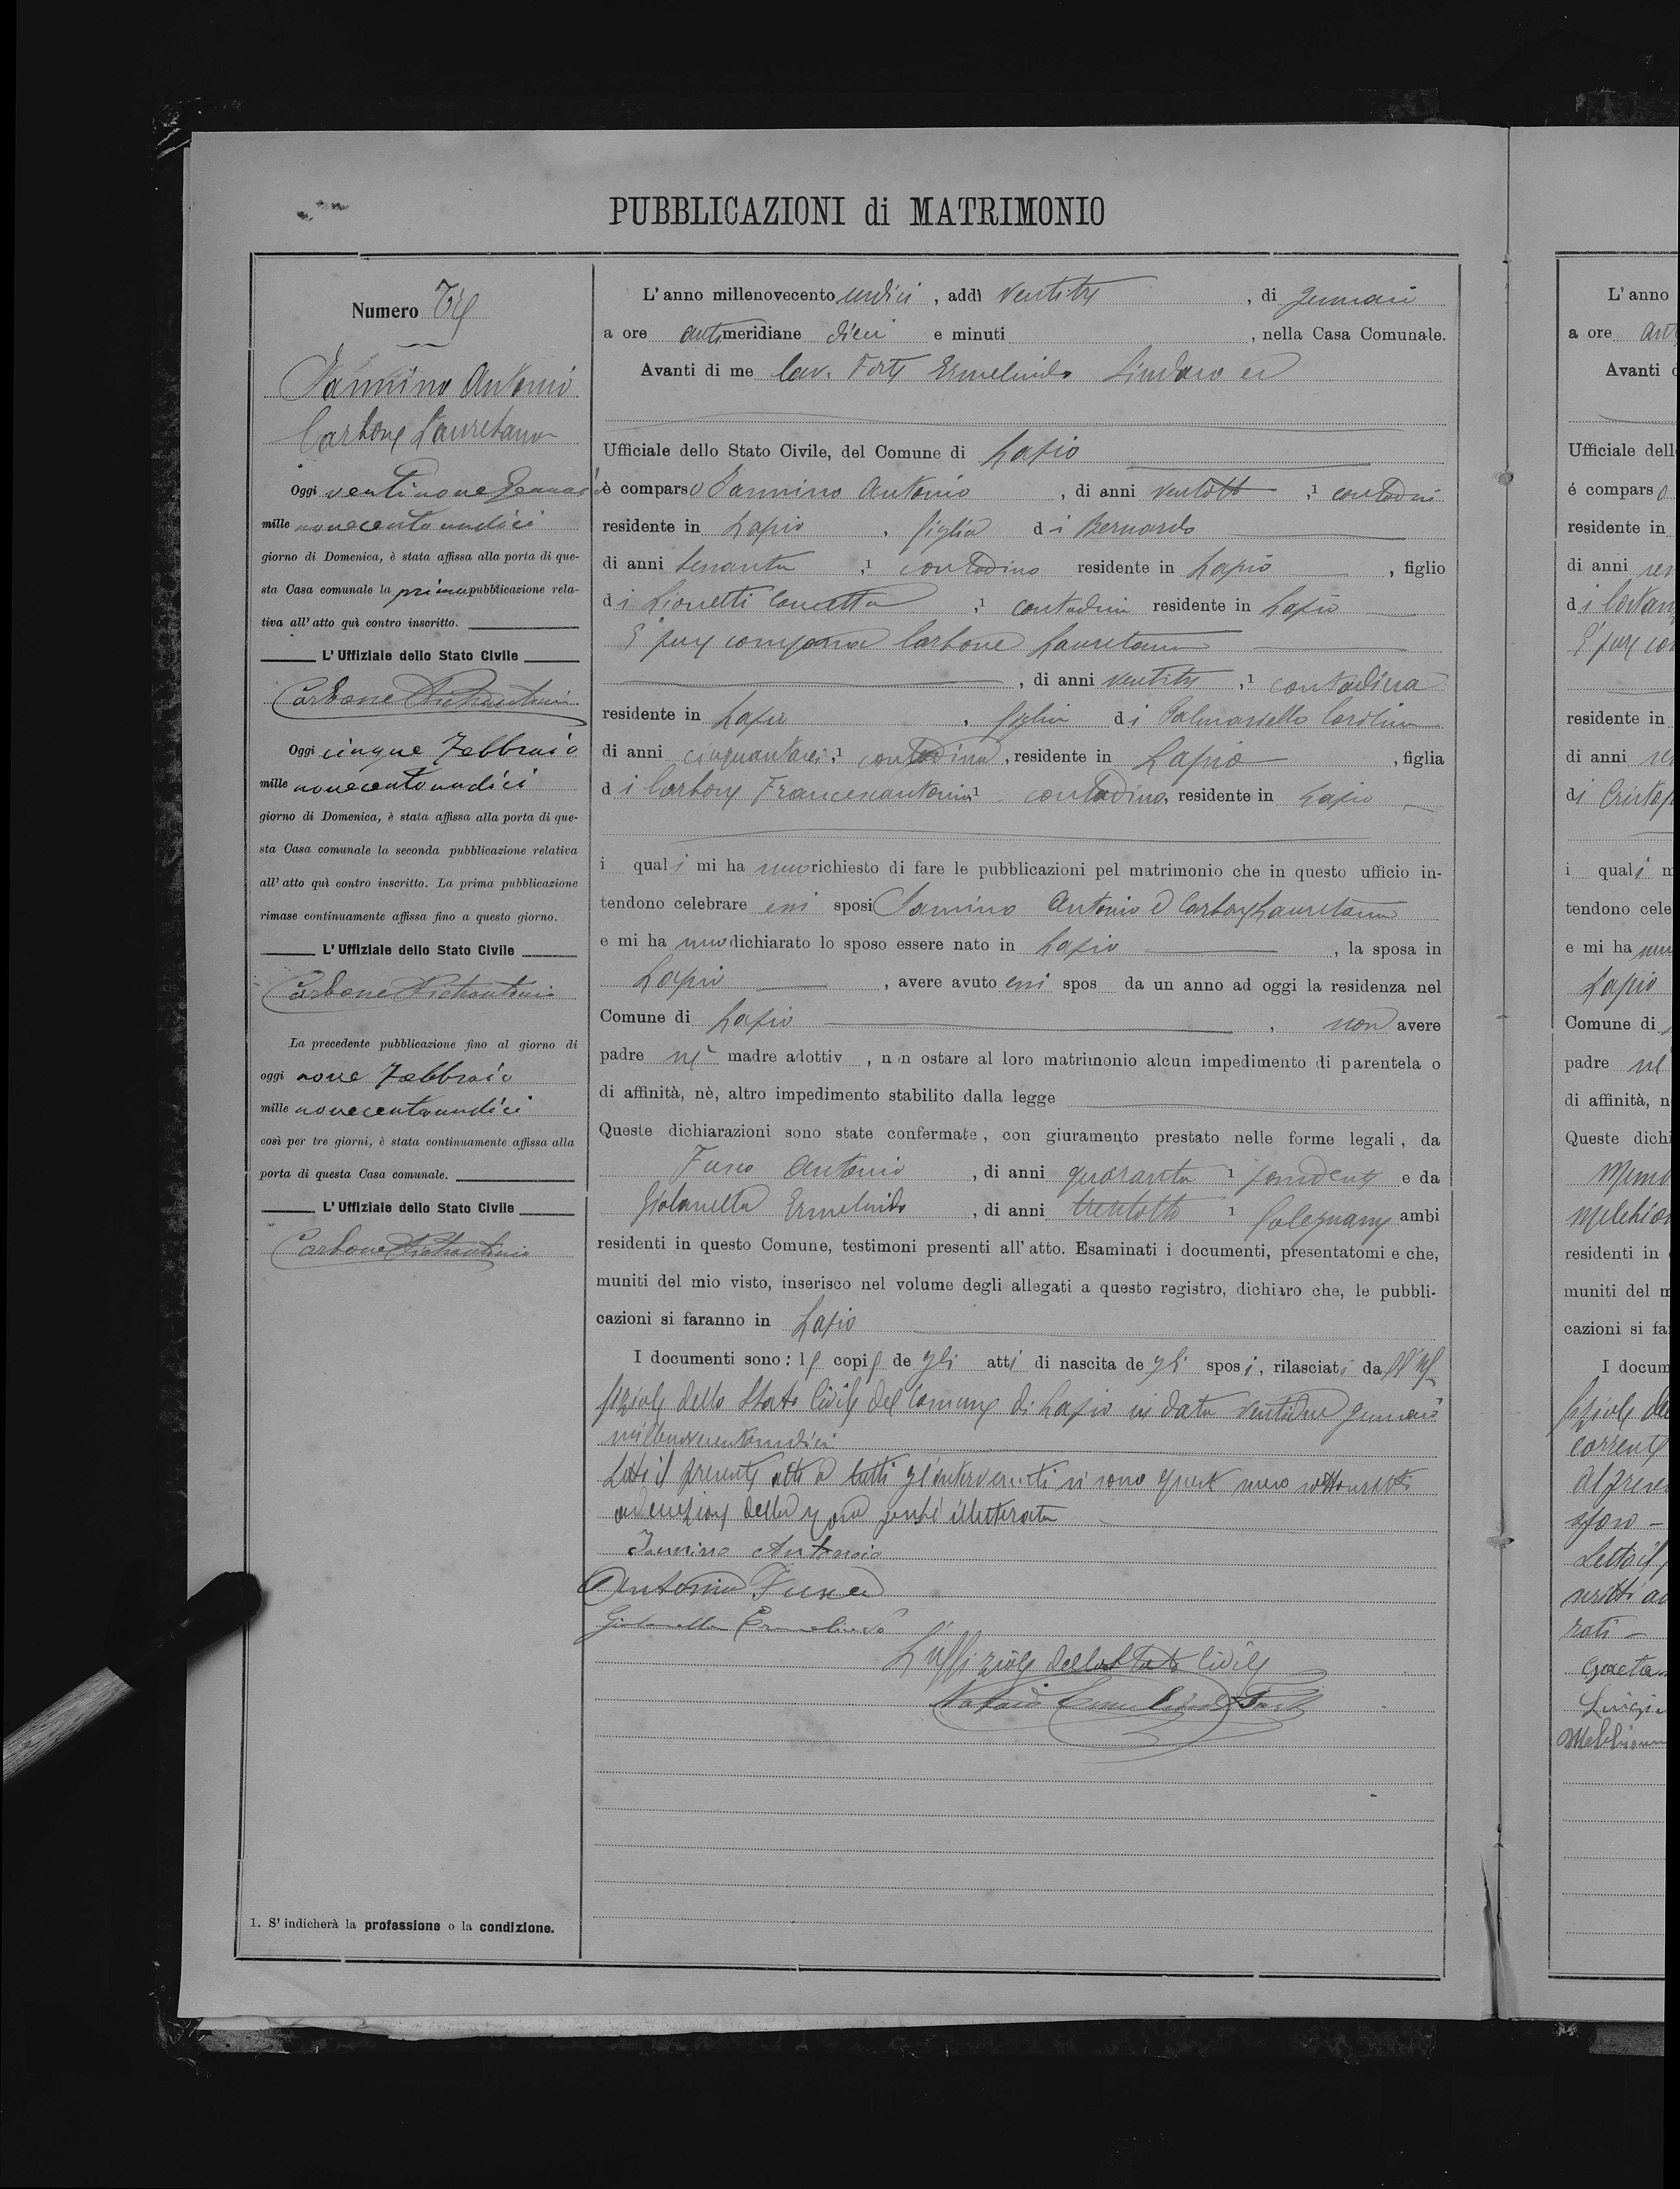 PUBBLICAZIONI di MATRIMONIO
Numero Tre
Iannino Antonio
Carbone Lauretana
Oggi ventinove Gennaio
mille novecentoundici
giorno di Domenica, è stata affissa alla porta di que-
sta Casa comunale la prima pubblicazione rela-
tiva all' atto quì contro inscritto.
L' Uffiziale dello Stato Civile
Carbone Pietrantonio
Oggi cinque Febbraio
mille novecentoundici
giorno di Domenica, è stata affissa alla porta di que-
sta Casa comunale la seconda pubblicazione relativa
all' atto quì contro inscritto. La prima pubblicazione
rimase continuamente affissa fino a questo giorno.
L' Uffiziale dello Stato Civile
Carbone Pietrantonio
La precedente pubblicazione fino al giorno di
oggi nove Febbraio
mille novecentoundici
così per tre giorni, è stata continuamente affissa alla
porta di questa Casa comunale.
L' Uffiziale dello Stato Civile
Carbone Pietrantonio
1. S' indicherà la professione o la condizione.
L' anno millenovecento undici, addì ventitre, di gennaio
a ore antimeridiane dieci e minuti, nella Casa Comunale.
Avanti di me Cav. Forte Ermelindo Sindaco ed
Ufficiale dello Stato Civile, del Comune di Lapio
è comparso Iannino Antonio, di anni ventotto,1 contadino
residente in Lapio, figlio di Bernardo
di anni sessanta,1 contadino residente in Lapio, figlio
di Lionetti Concetta,1 contadina residente in Lapio
E' pure comparsa Carbone Lauretana
, di anni ventitre,1 contadina
residente in Lapio, figlia di Palmariello Carolina
di anni cinquantasei,1 contadina, residente in Lapio, figlia
di Carbone Francescantonio1 contadino, residente in Lapio
i quali mi hanno richiesto di fare le pubblicazioni pel matrimonio che in questo ufficio in-
tendono celebrare essi sposi Iannino Antonio e Carbone Lauretana
e mi hanno dichiarato lo sposo essere nato in Lapio, la sposa in
Lapio, avere avuto essi spos da un anno ad oggi la residenza nel
Comune di Lapio, non avere
padre nè madre adottiv , non ostare al loro matrimonio alcun impedimento di parentela o
di affinità, nè, altro impedimento stabilito dalla legge
Queste dichiarazioni sono state confermate, con giuramento prestato nelle forme legali, da
Fusco Antonio, di anni quaranta 1 possidente e da
Giolanella Ermelindo, di anni trentotto 1 falegname ambi
residenti in questo Comune, testimoni presenti all' atto. Esaminati i documenti, presentatomi e che,
muniti del mio visto, inserisco nel volume degli allegati a questo registro, dichiaro che, le pubbli-
cazioni si faranno in Lapio
I documenti sono: le copie de gli atti di nascita de gli sposi, rilasciati dall'Uf
fiziale dello Stato Civile del Comune di Lapio in data ventidue gennaio
millenovecentoundici
Letto il presente atto a tutti gl'intervenuti si sono questi meco sottoscritti
ad eccezione della sposa perchè illetterata
Iannino Antonio
Antonio Fusco
Giolanella Ermelindo
L'uffiziale dello Stato Civile
Ermelindo Forte
L' anno
a ore ant
Avanti
Ufficiale dell
é comparso
residente in
di anni
di
E' pure co
residente in
di anni
di Cristof
i quali m
tendono cele
e mi ha
Lapio
Comune di
padre nè
di affinità, n
Queste dichi
residenti in
muniti del m
cazioni si fa
I docum
fiziale de
corrente
Letto il
Gaeta
Luigi